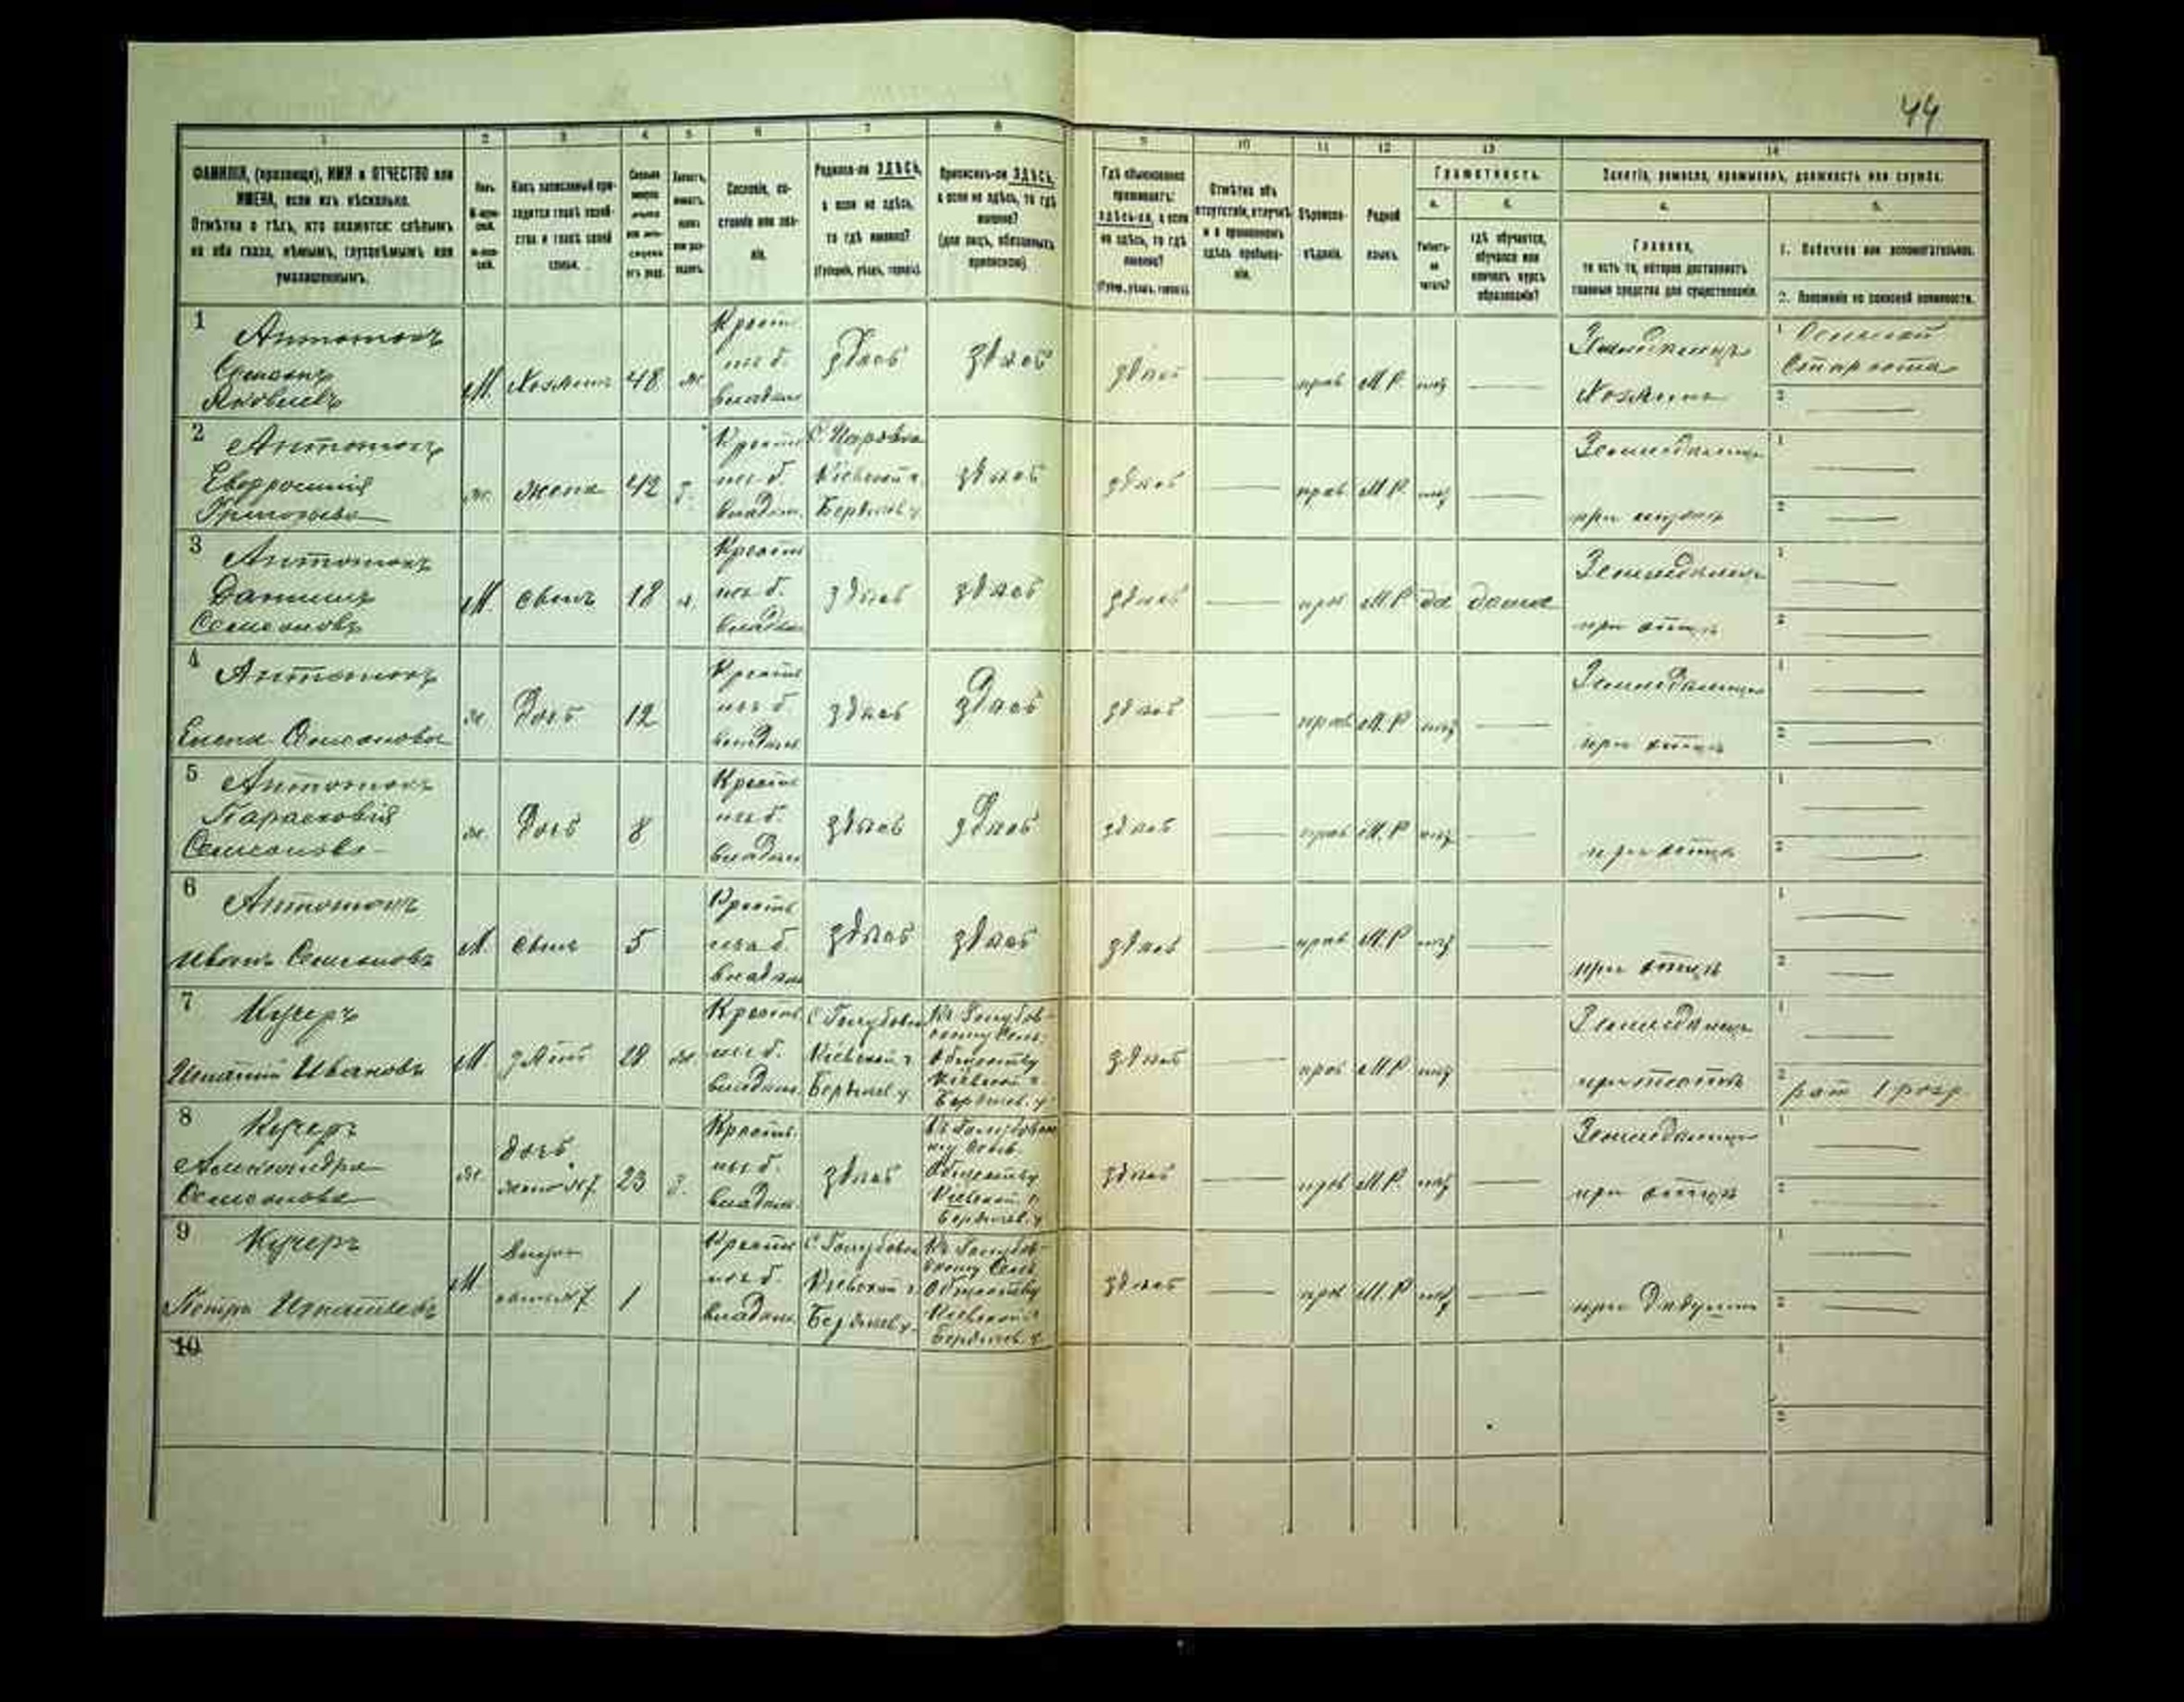 44
1 2 3 4 5 6 7 8 9 10 11 12 13 14
ФАМИЛІЯ, (прозвище), ИМЯ и ОТЧЕСТВО или
ИМЕНА, если ихъ нѣсколько.
Отмѣтка о тѣхъ, кто окажется: слѣпымъ
на оба глаза, нѣмымъ, глухонѣмымъ или
умалишеннымъ.
Полъ.
Какъ записанный при-
ходится главѣ хозяй-
ства и главѣ своей
семьи.
Сословіе, со-
стояніе или зва-
ніе.
Родился-ли ЗДѢСЬ,
а если не здѣсь,
то гдѣ именно?
(Губернія, уѣздъ, городъ).
Приписанъ-ли ЗДѢСЬ,
а если не здѣсь, то гдѣ
именно?
(для лицъ, обязанныхъ
припискою).
Гдѣ обыкновенно
проживаетъ:
здѣсь-ли, а если
не здѣсь, то гдѣ
именно?
(Губер., уѣздъ, городъ).
Отмѣтка объ
отсутствіи, отлучкѣ
и о временномъ
здѣсь пребыва-
ніи.
Вѣроиспо-
вѣданіе.
Родной
языкъ.
Грамотность.
а.
Умѣетъ-
ли
читать?
б.
гдѣ обучается,
обучался или
кончилъ курсъ
образованія?
Занятіе, ремесло, промыселъ, должность или служба.
а.
Главное,
то есть то, которое доставляетъ
главныя средства для существованія.
б.
1. Побочное или вспомогательное.
2. Положеніе по воинской повинности.
1
Антонюкъ
Семенъ
Яковлевъ
М. Хозяинъ 48 ж.
Крест.
изъ б.
владѣл.
здѣсь здѣсь здѣсь — прав М.Р. нѣт —
Хозяинъ
1 Сельскій
Староста
2 —
2
Антонюкъ
Евфросинія
Григорьева
ж. жена 42 з.
Крестьян
изъ б.
владѣл.
Кіевской г.
Бердичев. у.
здѣсь здѣсь — прав М.Р. нѣт —
1 —
2 —
3
Антонюкъ
Даниилъ
Семеновъ
М. сынъ 18 х.
Крестьян
изъ б.
владѣл.
здѣсь здѣсь здѣсь — прав М.Р. да дома
при отцѣ
1 —
2 —
4
Антонюкъ
Елена Семенова
ж. дочь 12
Крестьян
изъ б.
владѣл.
здѣсь здѣсь здѣсь — прав М.Р. нѣт —
при отцѣ
1 —
2 —
5
Антонюкъ
Параскевія
Семенова
ж. дочь 8
Крестьян
изъ б.
владѣл.
здѣсь здѣсь здѣсь — прав М.Р. нѣт —
при отцѣ
1 —
2 —
6
Антонюкъ
Иванъ Семеновъ
М. сынъ 5
Крестьян
изъ б.
владѣл.
здѣсь здѣсь здѣсь — прав М.Р. нѣт —
при отцѣ
1 —
2 —
7
Кучеръ
Игнатій Ивановъ
М. зять 28 ж.
Крестьян
изъ б.
владѣл.
С. Голубовка
Кіевской г.
Бердичев. у.
Къ Голубов-
скому Сель.
Обществу
Кіевской г.
Бердичев. у.
здѣсь — прав М.Р. нѣт —
при тестѣ
1 —
2 рат 1 разр
8
Кучеръ
Александра
Семенова
ж. дочь
жена №7 23 з.
Крестьян.
изъ б.
владѣл.
здѣсь
Къ Голубовско
му Сель.
Обществу
Кіевской г.
Бердичев. у.
здѣсь — прав М.Р. нѣт —
при отцѣ
1 —
2 —
9
Кучеръ
Петръ Игнатьевъ
М. Внукъ
сынъ №7 1
Крестьян
изъ б.
владѣл.
С. Голубовка
Кіевской г.
Бердичев. у.
Къ Голубов-
скому Сель.
Обществу
Кіевской г.
Бердичев. у.
здѣсь — прав М.Р. нѣт —
при дѣдушкѣ
1 —
2 —
10
1
2